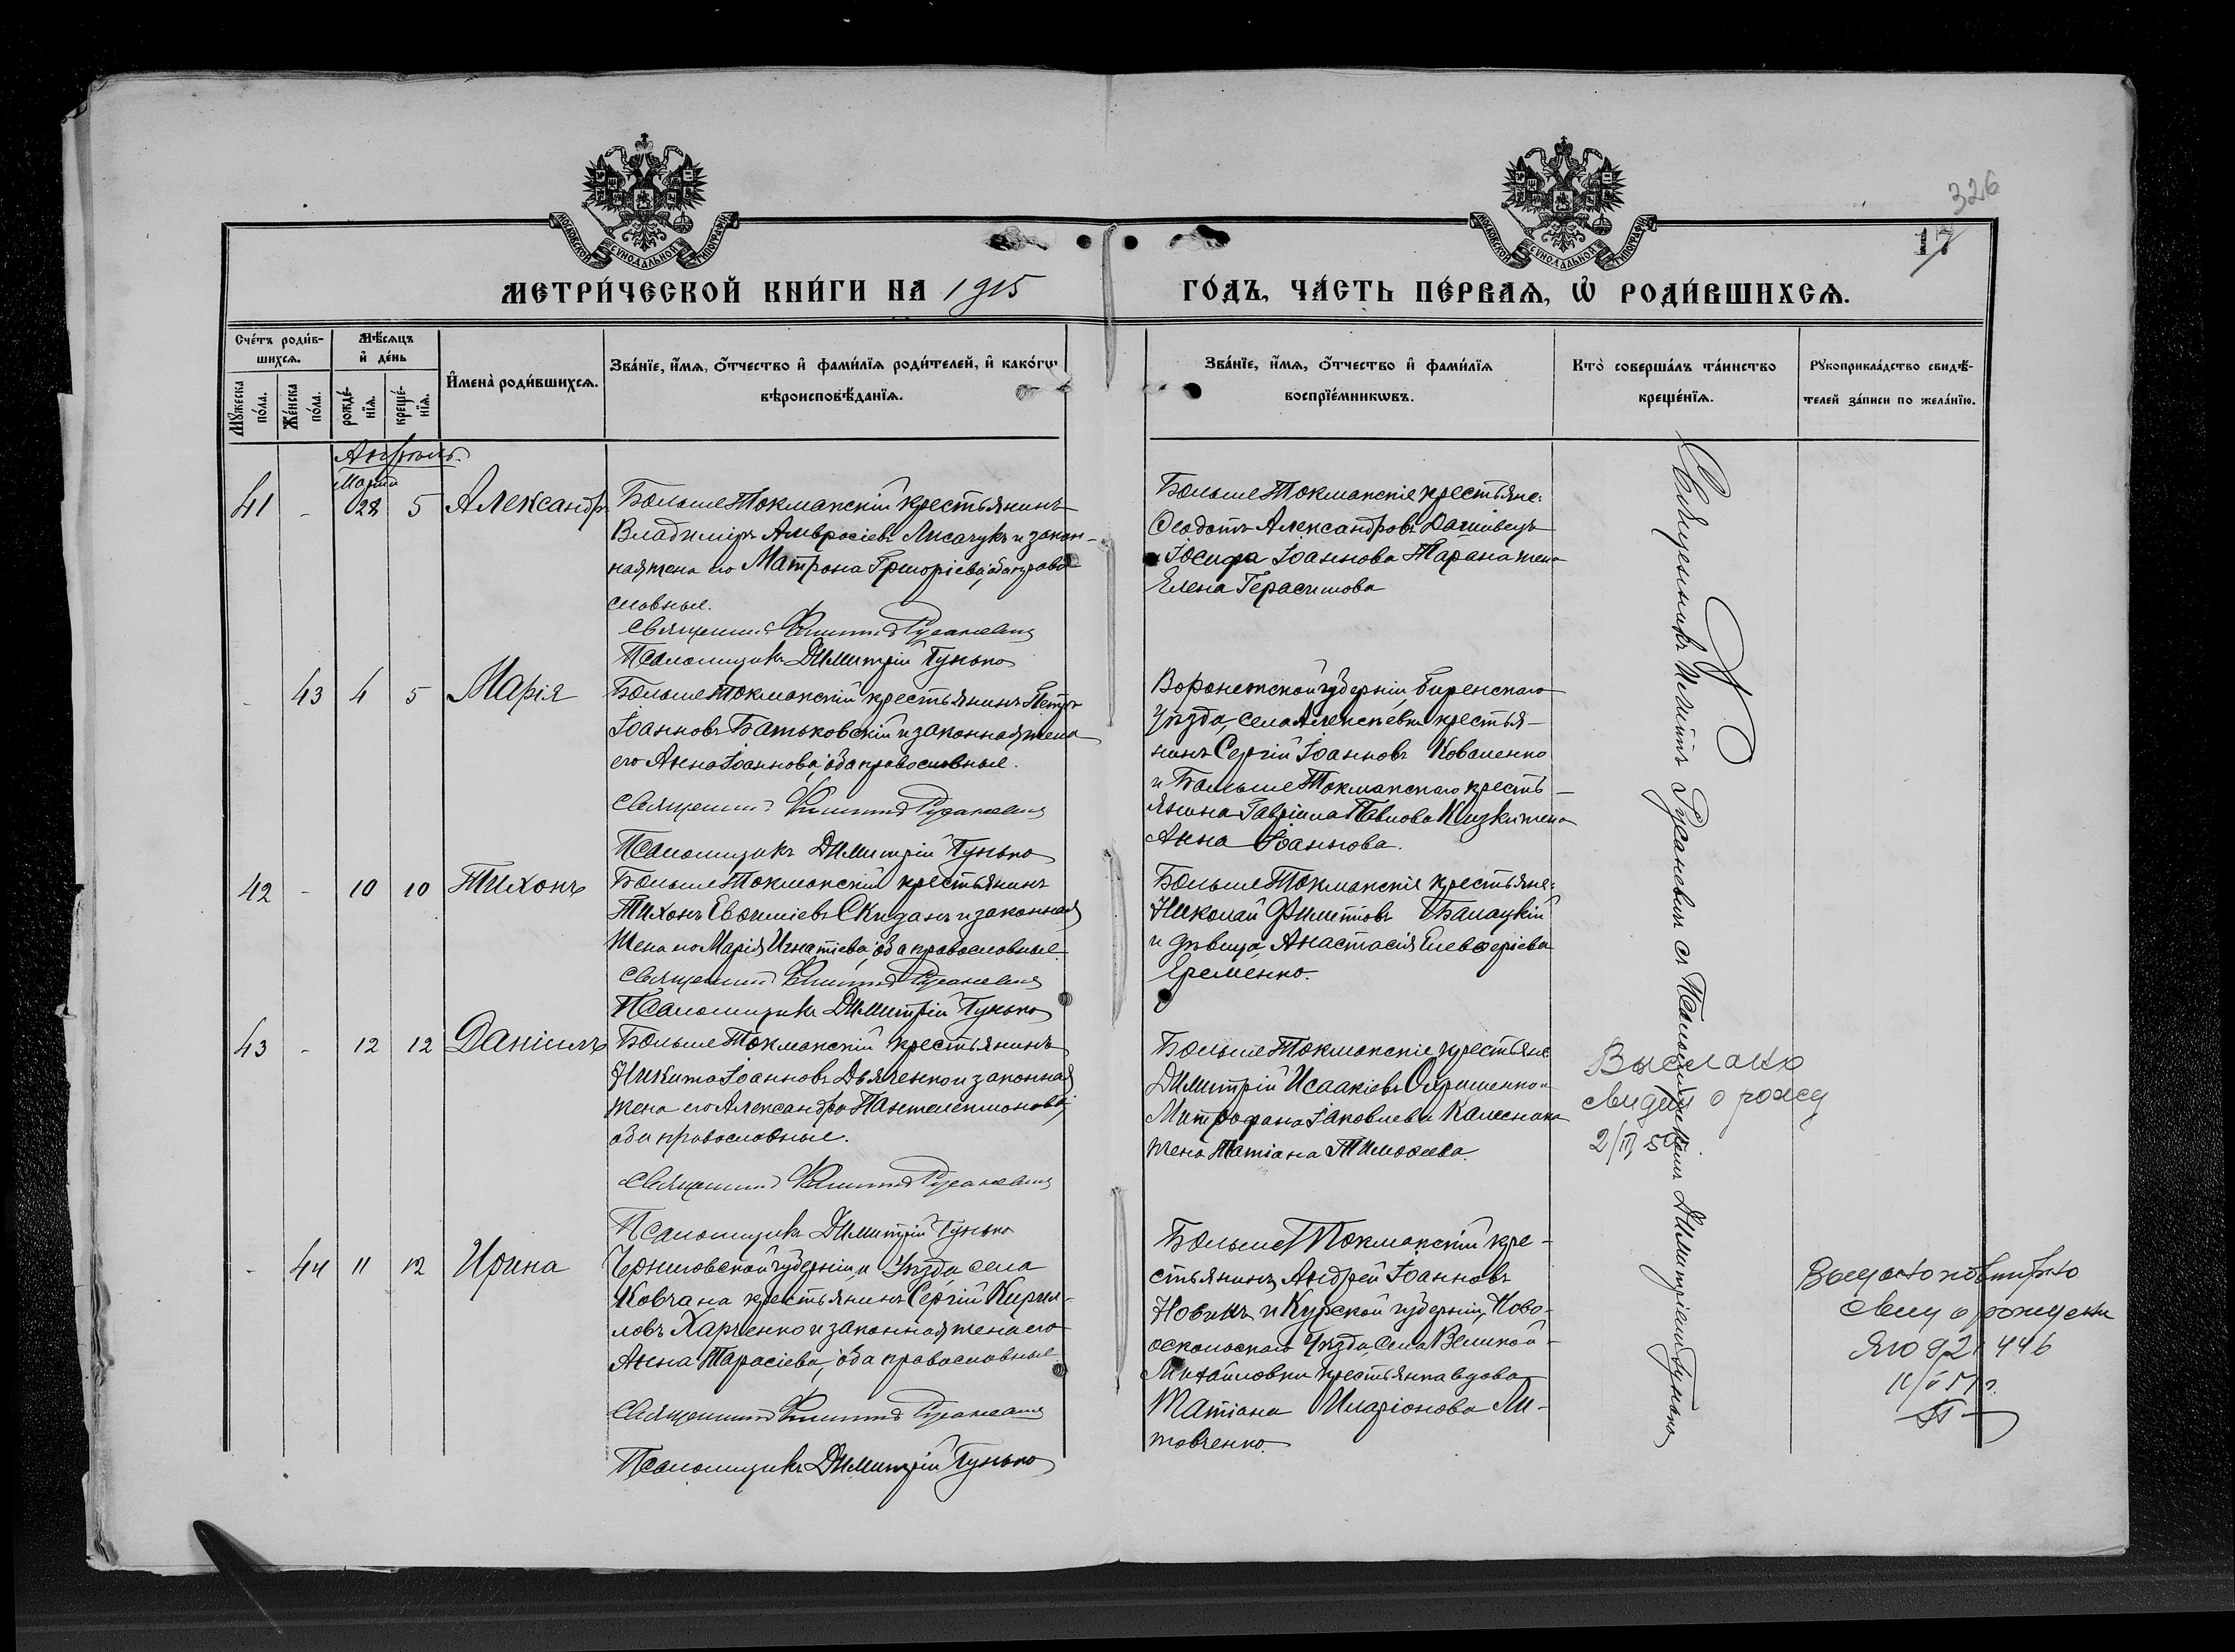 326
17
МОСКОВСКОЙ СѴНОДАЛЬНОЙ ТИПОГРАФІИ
МОСКОВСКОЙ СѴНОДАЛЬНОЙ ТИПОГРАФІИ
МЕТРИ́ЧЕСКОЙ КНИ́ГИ НА 1915 ГО́ДЪ, ЧА́СТЬ ПЕ́РВАѦ, Ѡ҆ РОДИ́ВШИХСѦ.
Сче́тъ роди́в-
шихсѧ.
Мꙋжеска по́ла.
Же́нска по́ла.
Мѣ́сѧцъ
и҆ де́нь
рожде́-
нїѧ.
креще́-
нїѧ.
И҆мена̀ роди́вшихсѧ.
Зва́нїе, и҆́мѧ, ѻ҆́тчество и҆ фами́лїѧ роди́телей, и҆ како́гѡ
вѣроисповѣ́данїѧ.
Зва́нїе, и҆́мѧ, ѻ҆́тчество и҆ фами́лїѧ
воспрїе́мникѡвъ.
Кто̀ соверша́лъ та́инство
креще́нїѧ.
Рꙋкоприкла́дство свидѣ́-
телей за́писи по жела́нїю.
Апрѣль.
Марта
41 - 28 5 Александръ
БольшеТокмакскій крестьянинъ
Владиміръ Амвросіевъ Лисачукъ и закон-
ная жена его Матрона Григоріева, оба право
славные.
Священникъ Русаневичъ
Псаломщикъ Димитрій Гунько
БольшеТокмакскіе крестьяне:
Ѳеодотъ Александровъ Дашивецъ
и Іосифа Іоаннова Тарана жена
Елена Герасимова
- 43 4 5 Марія
БольшеТокмакскій крестьянинъ Петръ
Іоанновъ Батьковскій и законная жена
его Анна Іоаннова, оба православные.
Священникъ Русаневичъ
Псаломщикъ Димитрій Гунько
Воронежской губерніи, Бирюнскаго
Уѣзда, села Алексѣевки крестья-
нинъ Сергій Іоанновъ Коваленко
и БольшеТокмакскаго кресть-
янина Гавріила Павлова жена
Анна Іоаннова.
42 - 10 10 Тихонъ
БольшеТокмакскій крестьянинъ
Тихонъ Евѳиміевъ Скиданъ и законная
жена его Марія Игнатіева, оба православные
Священникъ Русаневичъ
Псаломщикъ Димитрій Гунько
БольшеТокмакскіе крестьяне:
Николай Филипповъ Балацкій
и дѣвица Анастасія Елевѳеріева
Еременко.
43 - 12 12 Даніилъ
БольшеТокмакскій крестьянинъ
Никита Іоанновъ Дьяченко и законная
жена его Александра Пантелеимонова,
оба православные.
Священникъ Русаневичъ
Псаломщикъ Димитрій Гунько
БольшеТокмакскіе крестьяне
Димитрій Исаакіевъ Охрименко и
Митрофана Іаковлева Калесника
жена Татіана Тимоѳеева.
Выслано
свидет о рожд
2/II 5
- 44 11 12 Ирина
Черниговской губерніи, и Уѣзда села
Ковчана крестьянинъ Сергій Кирил-
ловъ Харченко и законная жена его
Анна Тарасіева, оба православные
Священникъ Русаневичъ
Псаломщикъ Димитрій Гунько
Больше Токмакскій кре-
стьянинъ Андрей Іоанновъ
Новикъ и Курской губерніи, Ново-
оскольскаго Уѣзда, села Великой-
Михайловки крестьянка вдова
Татіана Иларіонова Ли-
товченко.
Выдано повторно
свид о рождении
ЯЮ 921446
Священникъ Филиппъ Русаневичъ съ Псаломщикомъ Димитріемъ Гунько